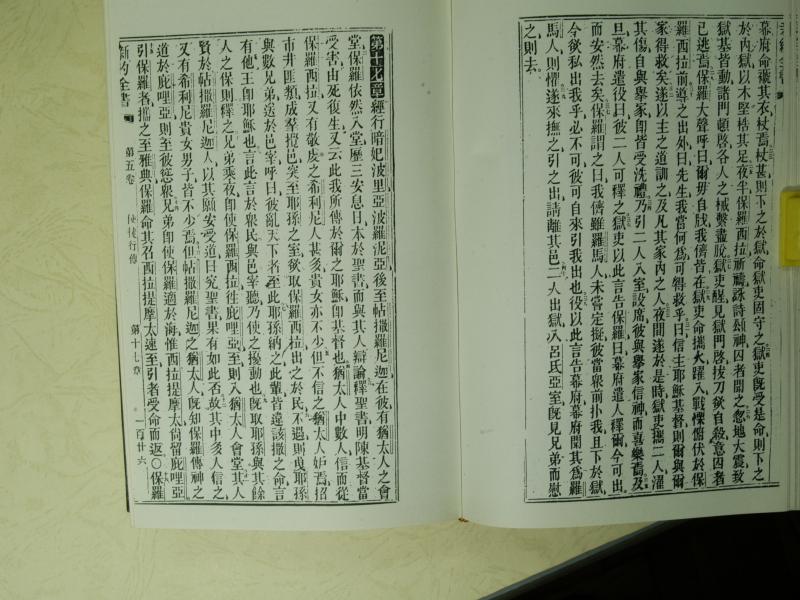 幕府命褫其衣杖焉杖甚則下之於獄命獄吏固守之獄吏旣受是命則下之
於內獄以木堅梏其足夜半保羅西拉祈禱詠詩頌神囚者聞之忽地大震致
獄基皆動諸門頓啓各人之械繫盡脫獄吏醒見獄門啓拔刀欲自殺意囚者
已逃焉保羅大聲呼曰爾毋自戕我儕皆在獄吏命攜火躍入戰慄俯伏於保
羅西拉前導之出外曰先生我當何為可得救乎曰信主耶穌基督則爾與爾
家得救矣遂以主之道訓之及凡其家內之人夜間遂於是時獄吏攜二人濯
其傷自與舉家卽皆受洗禮乃引二人入室設席彼與舉家信神而喜樂焉及
旦幕府遣役曰彼二人可釋之獄吏以此言告保羅曰幕府遣人釋爾今可出
而安然去矣保羅謂之曰我儕雖羅馬人未嘗定擬彼當衆前扑我且下於獄
今欲私出我乎必不可彼可自來引我出也役以此言告幕府幕府聞其為羅
馬人則懼遂來撫之引之出請離其邑二人出獄入呂氏亞室旣見兄弟而慰
之則去
新約全書
第五卷
使徒行傳
第十七章
一百廿六
第十七章經行暗妃波里亞波羅泥亞後至帖撒羅尼迦在彼有猶太人之會
堂保羅依然入堂歷三安息日本於聖書而與其人辯論釋聖書明陳基督當
受害由死復生又云此我所傳於爾之耶穌卽基督也猶太人中數人信而從
保羅西拉又有敬虔之希利尼人甚多貴女亦不少但不信之猶太人妒焉招
市井匪類成羣攪邑突至耶孫之室欲取保羅西拉出之於民不遇則曳耶孫
與數兄弟送於邑宰呼曰彼亂天下者至此耶孫納之此輩皆違該撒之命言
有他王卽耶穌也言此言於衆民與邑宰聽乃使之擾動也旣取耶孫與其餘
人之保則釋之兄弟乘夜卽使保羅西拉往庇哩亞至則入猶太人會堂其人
賢於帖撒羅尼迦人以其願安受道日究聖書果有如此否故其中多人信之
又有希利尼貴女男子皆不少焉但帖撒羅尼迦之猶太人旣知保羅傳神之
道於庇哩亞則至彼慫衆兄弟卽使保羅適於海惟西拉提摩太尙留庇哩亞
引保羅者攜之至雅典保羅命其召西拉提摩太速至引者受命而返〇保羅